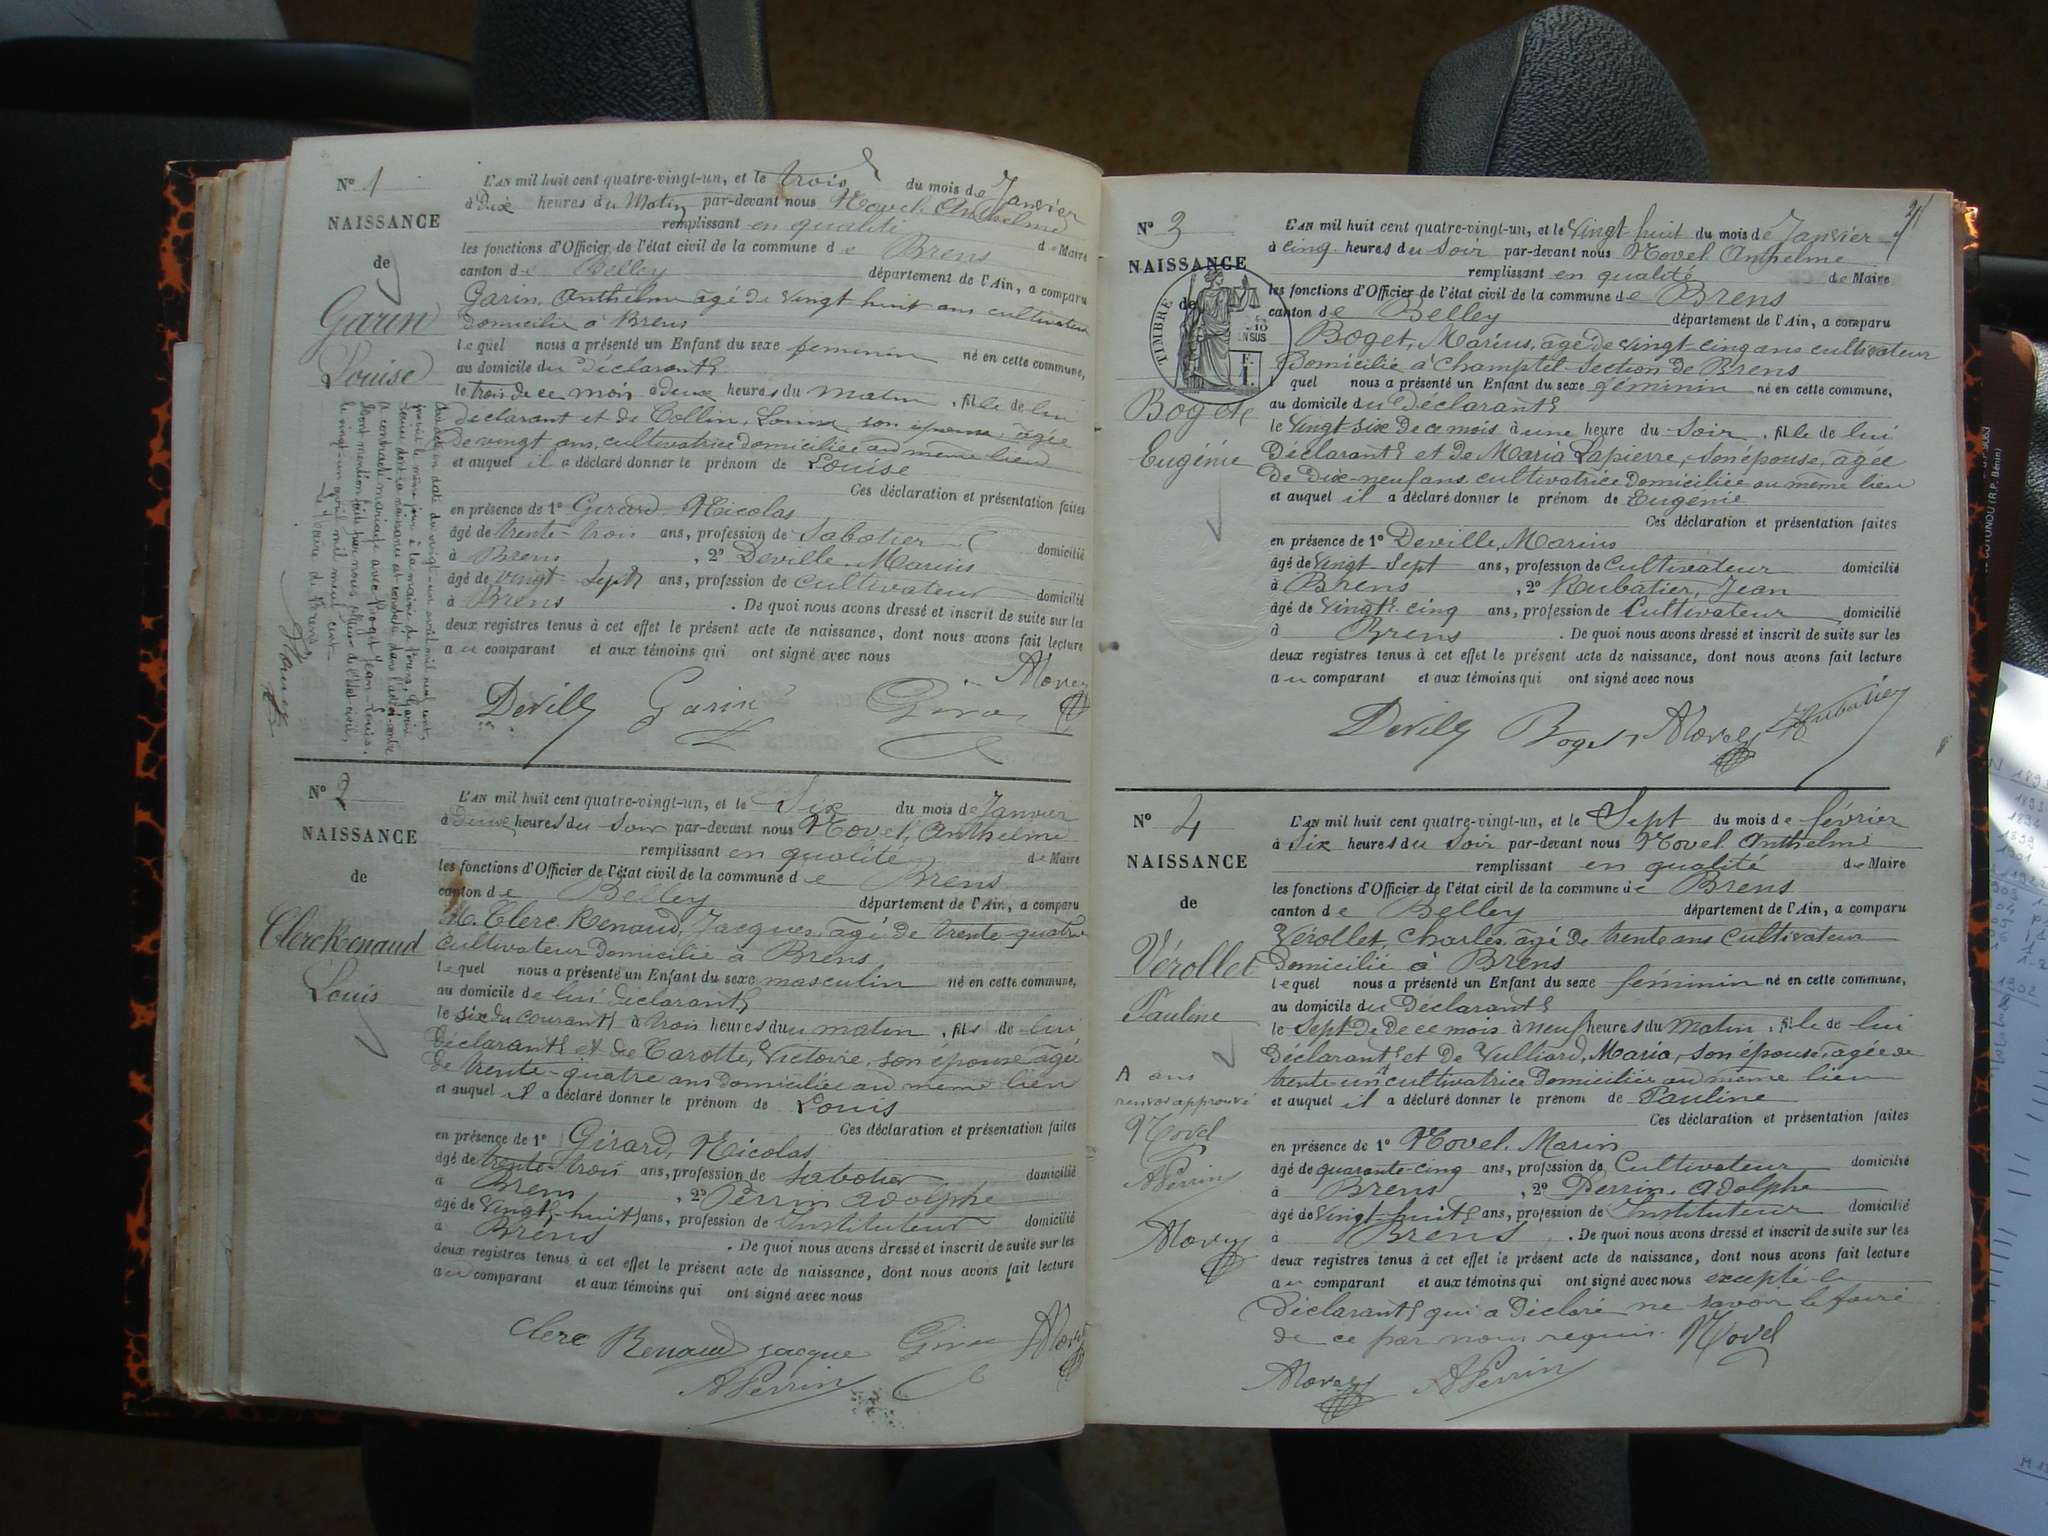 N° 1
NAISSANCE
de
Garin
Louise
L'AN mil huit cent quatre-vingt-un, et le trois du mois de Janvier
à Dix heures du Matin par-devant nous Novel Anthelme
remplissant en qualité de Maire
les fonctions d'Officier de l'état civil de la commune de Brens
canton de Belley département de l'Ain, a comparu
Garin, Anthelme agé de vingt huit ans cultivateur
Domicilié à Brens
lequel nous a présenté un Enfant du sexe feminin né en cette commune,
au domicile du déclarant
le trois de ce mois à deux heures du matin, fille de lui
déclarant et de Collin, Louise son épouse, agée
de vingt ans, cultivatrice domiciliée au même lieu
et auquel il a déclaré donner le prénom de Louise
Ces déclaration et présentation faites
en présence de 1° Girard, Nicolas
âgé de trente-trois ans, profession de Sabotier domicilié
à Brens, 2° Deville, Marius
âgé de vingt-sept ans, profession de cultivateur domicilié
à Brens. De quoi nous avons dressé et inscrit de suite sur les
deux registres tenus à cet effet le présent acte de naissance, dont nous avons fait lecture
au comparant et aux témoins qui ont signé avec nous
Deville Garin Girar Novel
a contracté mariage avec Boget Jean-Louis.
Dont mention faite par nous, officier de l'état civil,
le vingt-un avril mil neuf cent.
Le Maire de Brens,
N° 2
NAISSANCE
de
Clerc Renaud
Louis
L'AN mil huit cent quatre-vingt-un, et le Six du mois de Janvier
à Deux heures du soir par-devant nous Novel, Anthelme
remplissant en qualité de Maire
les fonctions d'Officier de l'état civil de la commune de Brens
canton de Belley département de l'Ain, a comparu
M. Clerc Renaud, Jacques, agé de trente-quatre
cultivateur Domicilié à Brens
lequel nous a présenté un Enfant du sexe masculin né en cette commune,
au domicile de lui déclarant
le six du courant à trois heures du matin, fils de lui
Déclarant et de Carotte, Victoire, son épouse agée
de trente-quatre ans domiciliée au même lieu
et auquel il a déclaré donner le prénom de Louis
Ces déclaration et présentation faites
en présence de 1° Girard, Nicolas
âgé de trente-trois ans, profession de sabotier domicilié
à Brens, 2° Perrin Adolphe
âgé de vingt-huit ans, profession de Instituteur domicilié
à Brens. De quoi nous avons dressé et inscrit de suite sur les
deux registres tenus à cet effet le présent acte de naissance, dont nous avons fait lecture
au comparant et aux témoins qui ont signé avec nous
Clerc Renaud jacque Girar Novel
A Perrin
2
N° 3
NAISSANCE
de
TIMBRE
10
EN SUS
F.
1.
Boget
Eugénie
L'AN mil huit cent quatre-vingt-un, et le vingt-huit du mois de Janvier
à cinq heures du soir par-devant nous Novel Anthelme
remplissant en qualité de Maire
les fonctions d'Officier de l'état civil de la commune de Brens
canton de Belley département de l'Ain, a comparu
Boget, Marius, agé de vingt cinq ans cultivateur
Domicilié à Champtel section de Brens
lquel nous a présenté un Enfant du sexe féminin né en cette commune,
au domicile du déclarant
le vingt-six de ce mois à une heure du soir, fille de lui
Déclarant et de Maria Lapierre, son épouse, agée
de Dix-neuf ans cultivatrice domiciliée au même lieu
et auquel il a déclaré donner le prénom de Eugénie
Ces déclaration et présentation faites
en présence de 1° Deville, Marius
âgé de vingt sept ans, profession de cultivateur domicilié
à Brens, 2° Rubatier, Jean
âgé de vingt cinq ans, profession de Cultivateur domicilié
à Brens. De quoi nous avons dressé et inscrit de suite sur les
deux registres tenus à cet effet le présent acte de naissance, dont nous avons fait lecture
au comparant et aux témoins qui ont signé avec nous
Deville Boget Novel Rubatier
N° 4
NAISSANCE
de
Vérollet
Pauline
A ans
renvoi approuvé
Novel
A Perrin
Novel
L'AN mil huit cent quatre-vingt-un, et le Sept du mois de février
à six heures du soir par-devant nous Novel Anthelme
remplissant en qualité de Maire
les fonctions d'Officier de l'état civil de la commune de Brens
canton de Belley département de l'Ain, a comparu
Vérollet, Charles, agé de trente ans cultivateur
Domicilié à Brens
lequel nous a présenté un Enfant du sexe féminin né en cette commune,
au domicile du Déclarant
le sept de De ce mois à neuf heures du matin, fille de lui
Déclarant et de Vulliard, Maria, son épouse, agée de
trente un cultivatrice Domiciliée au même lieu
et auquel il a déclaré donner le prenom de Pauline
Ces déclaration et présentation faites
en présence de 1° Novel, Marin
âgé de quarante-cinq ans, profession de Cultivateur domicilié
à Brens, 2° Perrin, Adolphe
âgé de vingt-huit ans, profession de Instituteur domicilié
à Brens. De quoi nous avons dressé et inscrit de suite sur les
deux registres tenus à cet effet le présent acte de naissance, dont nous avons fait lecture
au comparant et aux témoins qui ont signé avec nous excepté le
Déclarant qui a Déclaré ne savoir le faire
de ce par nous requis. Novel
Novel A Perrin